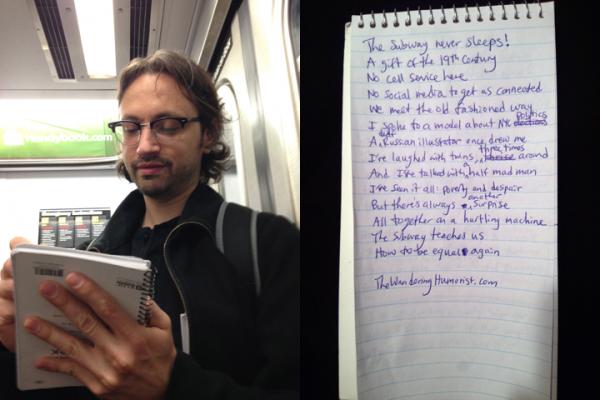 handybook.com
The Subway never sleeps!
A gift of the 19th Century
No cell service here
No social media to get us connected
We meet the old fashioned way
I spoke to a model about NYC politics
A deaf Russian illustrator once drew me
I've laughed with twins, three times around
And I've talked with a half mad man
I've seen it all: poverty and despair
But there's always another surprise
All together on a hurtling machine
The Subway teaches us
How to be equal again
TheWanderingHumorist.com